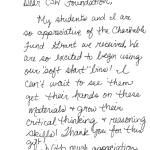 Dear CSH Foundation,
My students and I are
so appreciative of the Charitable
Fund Grant we received. We
are so excited to begin using
our "soft start" bins! I
can't wait to see them
get their hands on these
materials & grow their
critical thinking & reasoning
skills! Thank you for this
gift!
With much appreciation